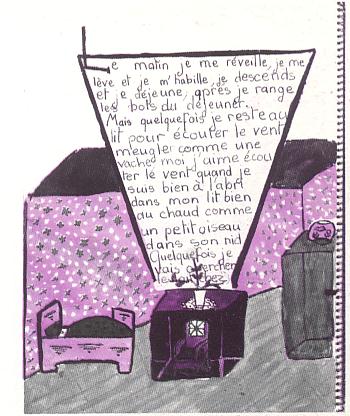 Le matin je me réveille, je me
lève et je m'habille, je descends
et je déjeune, après je range
les bols du déjeuner.
Mais quelquefois je reste au
lit pour écouter le vent
meugler comme une
vache moi j'aime écou
ter le vent quand je
suis bien à l'abri
dans mon lit bien
au chaud comme
un petit oiseau
dans son nid
Quelquefois je
vais chercher